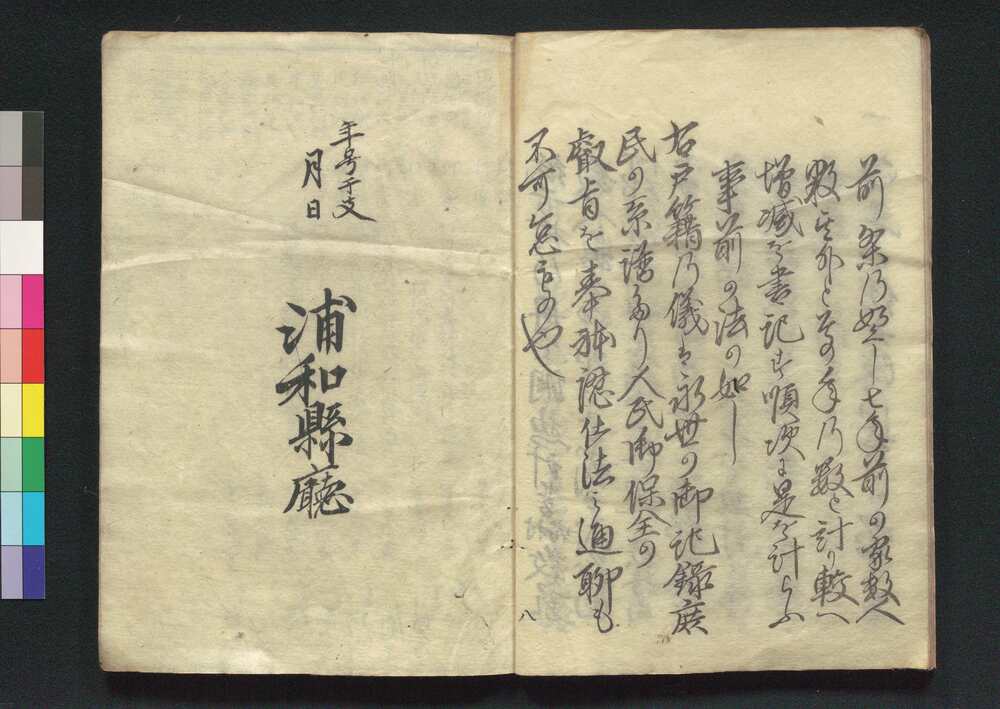 前条乃如し七年前の家数人
数其外と其年乃数と計り較へ
増減を書記す順次に是を計らふ
事前の法の如し
右戸籍乃儀は永世の御記録庶
民の系譜たり人民御保全の
叡旨を奉体認仕法之通聊も
不可怠もの也
八
年号干支
月日
浦和縣廳